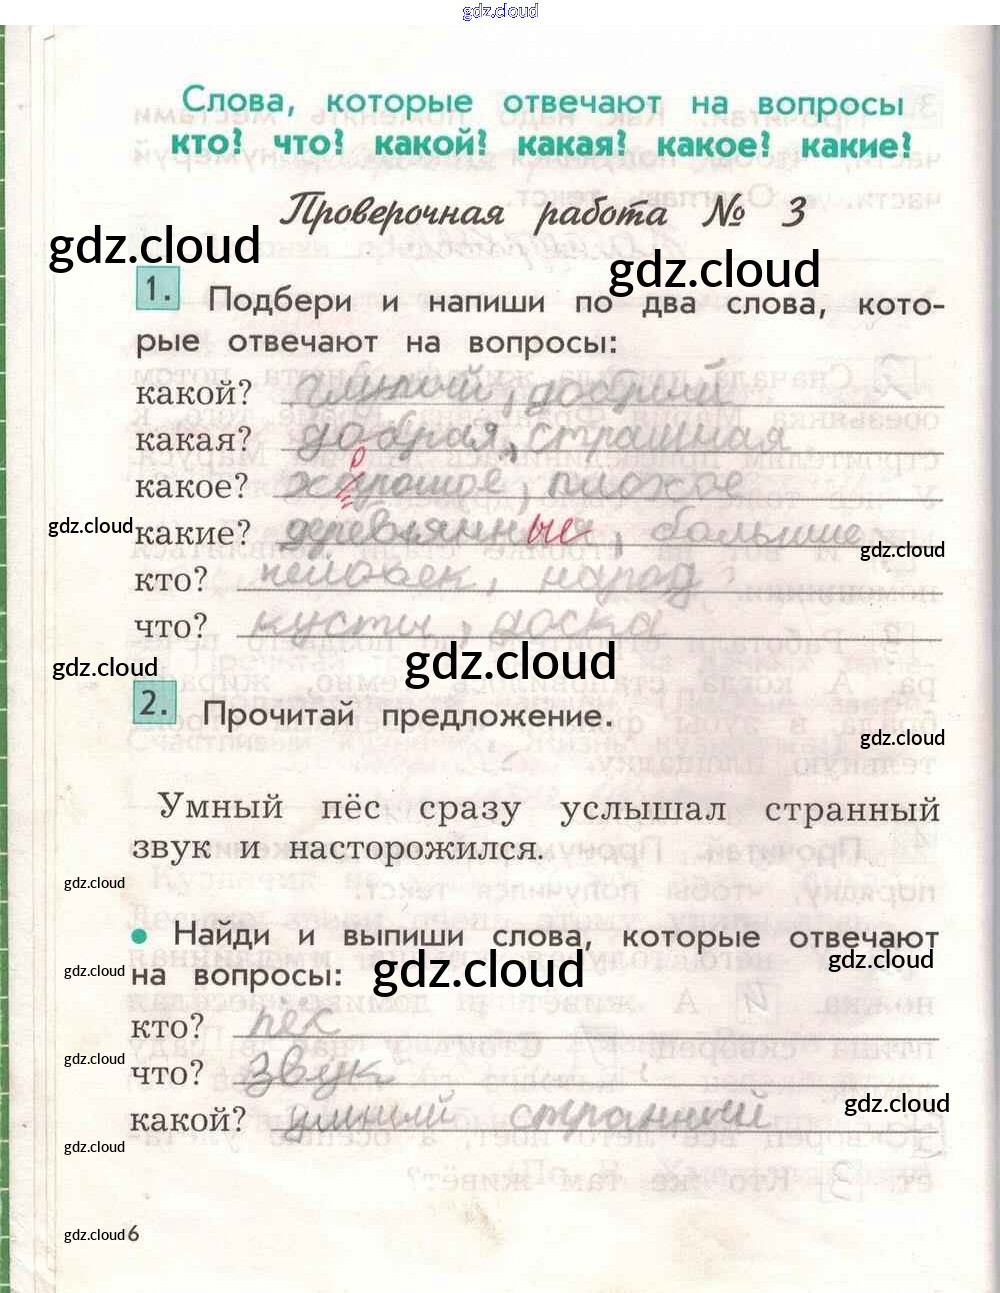 gdz.cloud
Слова, которые отвечают на вопросы
кто? что? какой? какая? какое? какие?
Проверочная работа № 3
gdz.cloud
gdz.cloud
1. Подбери и напиши по два слова, кото-
рые отвечают на вопросы:
какой? умный, добрый
какая? добрая, страшная
какое? хорошое, плохое
gdz.cloud
какие? деревянные, большие
gdz.cloud
кто? человек, народ
что? кусты, доска
gdz.cloud
gdz.cloud
2. Прочитай предложение.
gdz.cloud
Умный пёс сразу услышал странный
звук и насторожился.
gdz.cloud
• Найди и выпиши слова, которые отвечают
на вопросы:
gdz.cloud
gdz.cloud
gdz.cloud
кто? пёс
gdz.cloud
что? звук
gdz.cloud
какой? умный странный
gdz.cloud
gdz.cloud
6